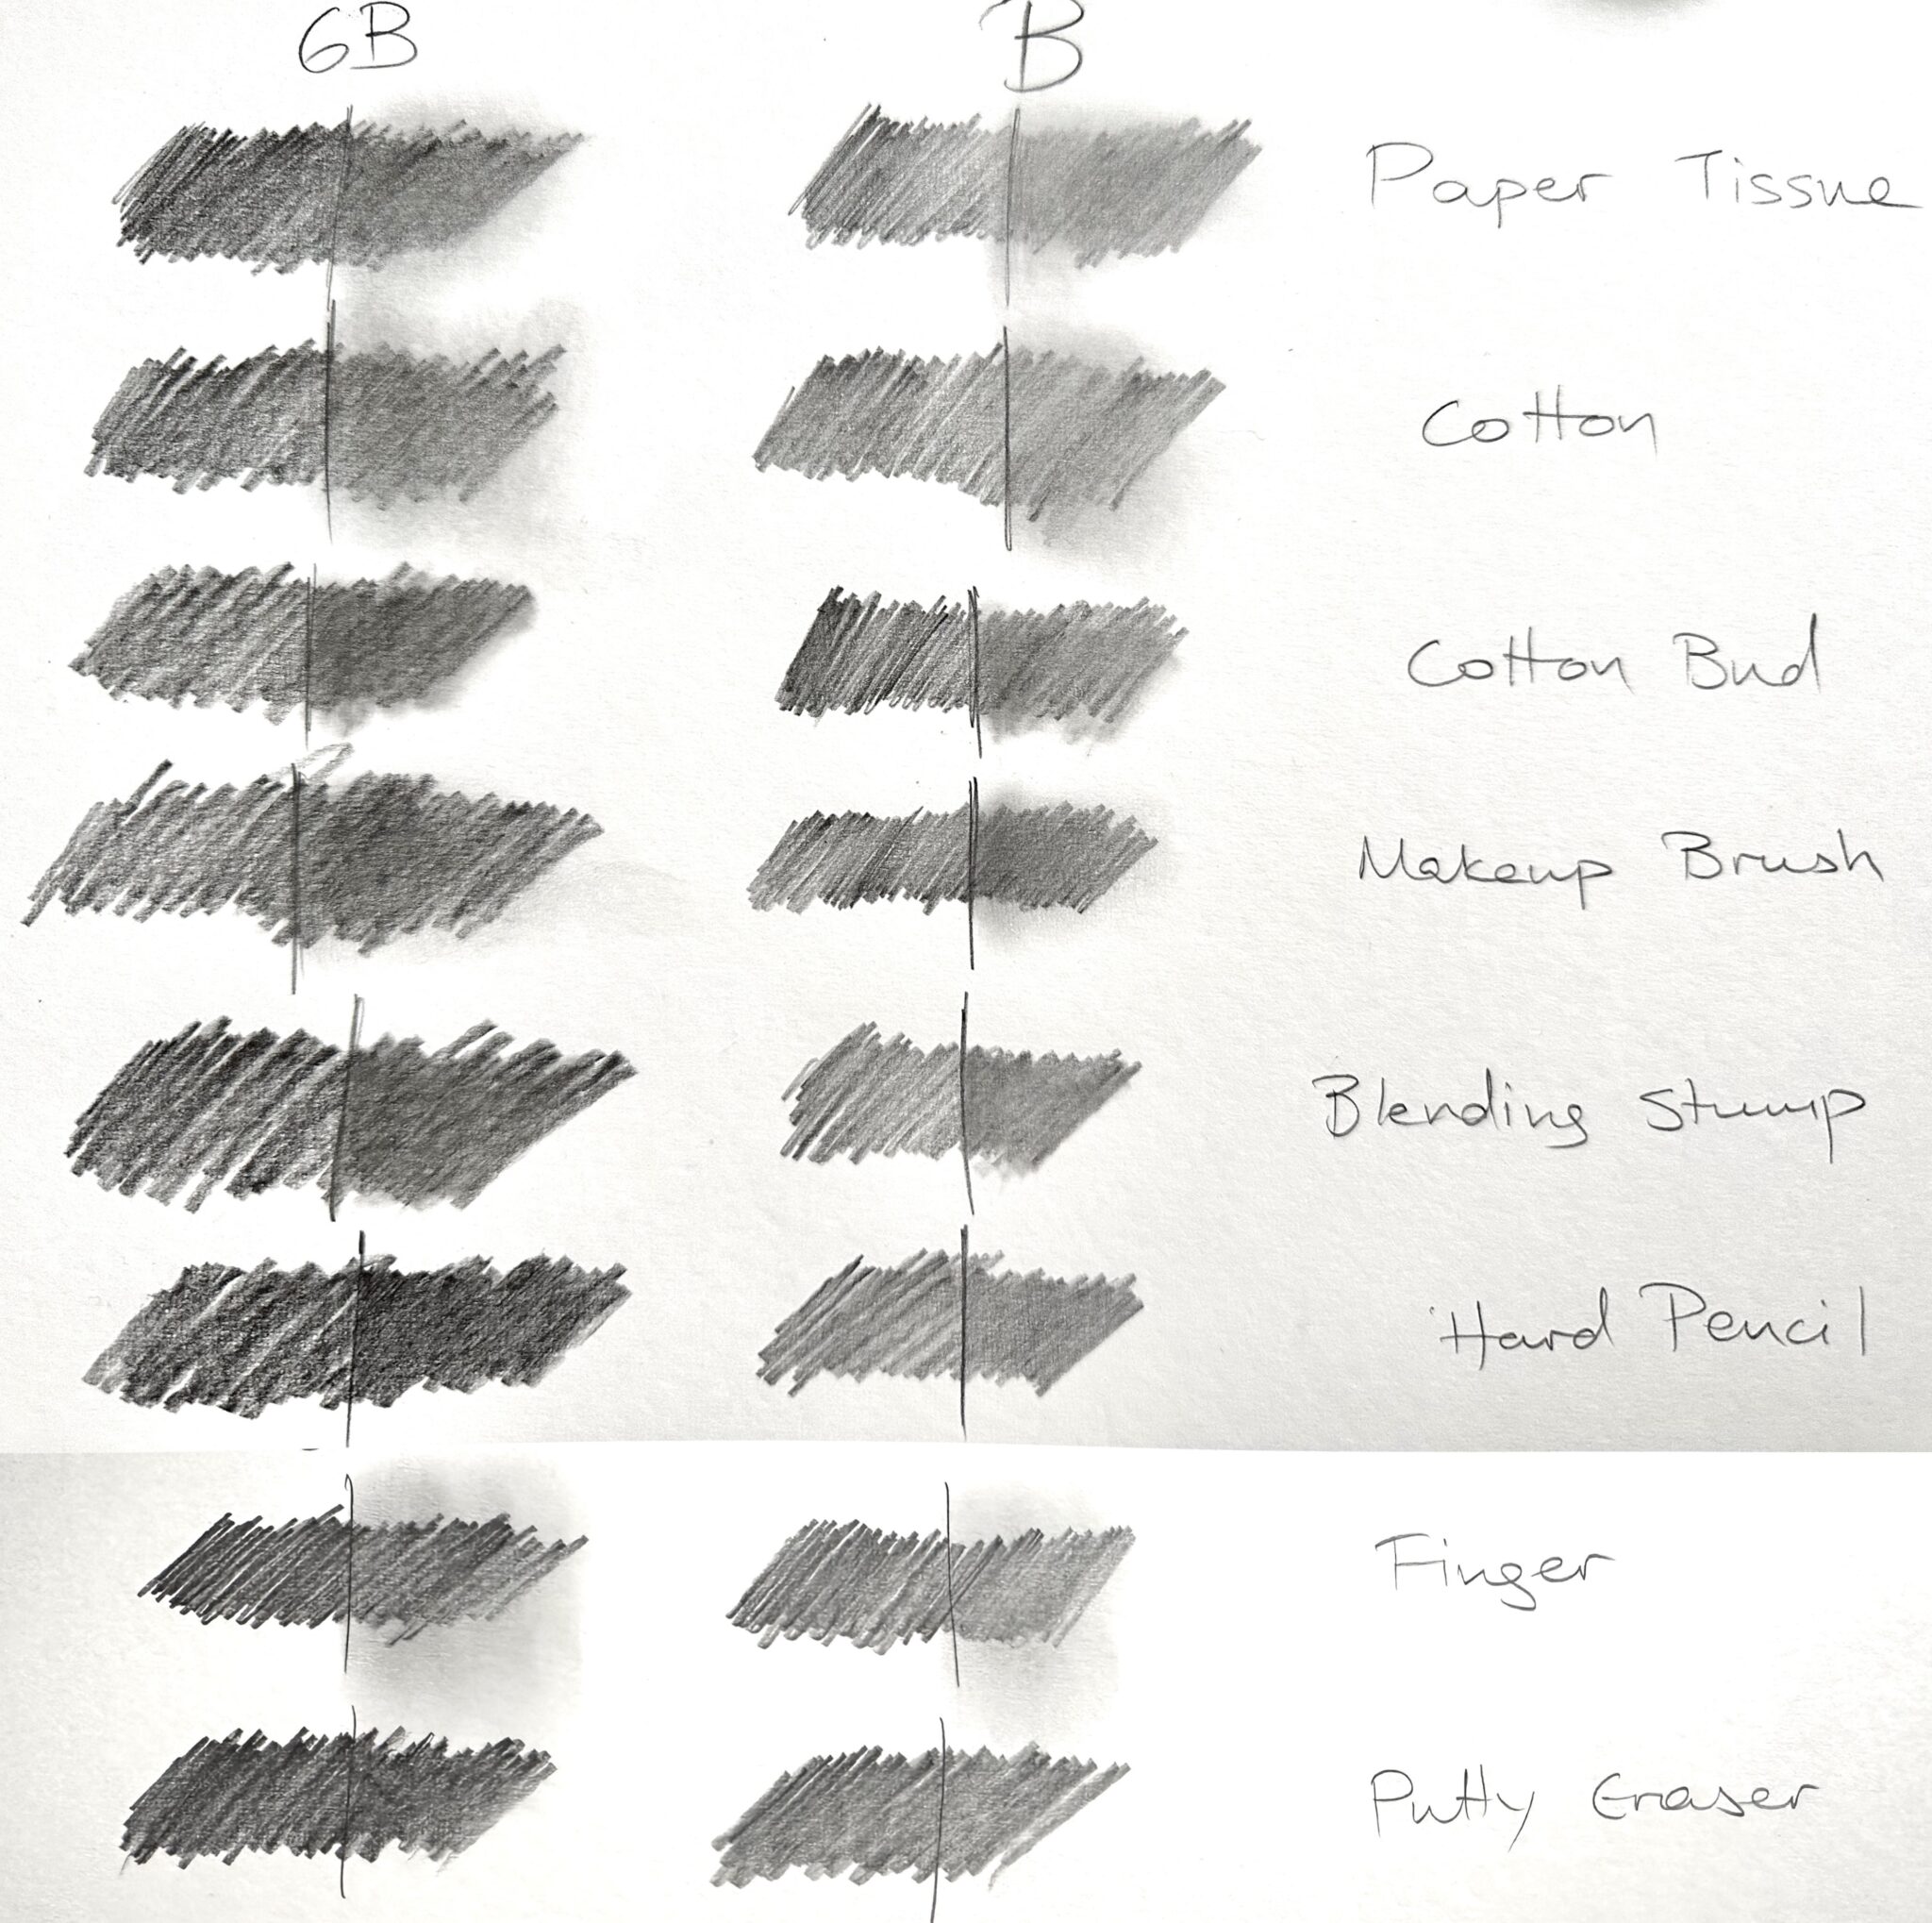 6B B
Paper Tissue
Cotton
Cotton Bud
Makeup Brush
Blending Stump
Hard Pencil
Finger
Putty Eraser